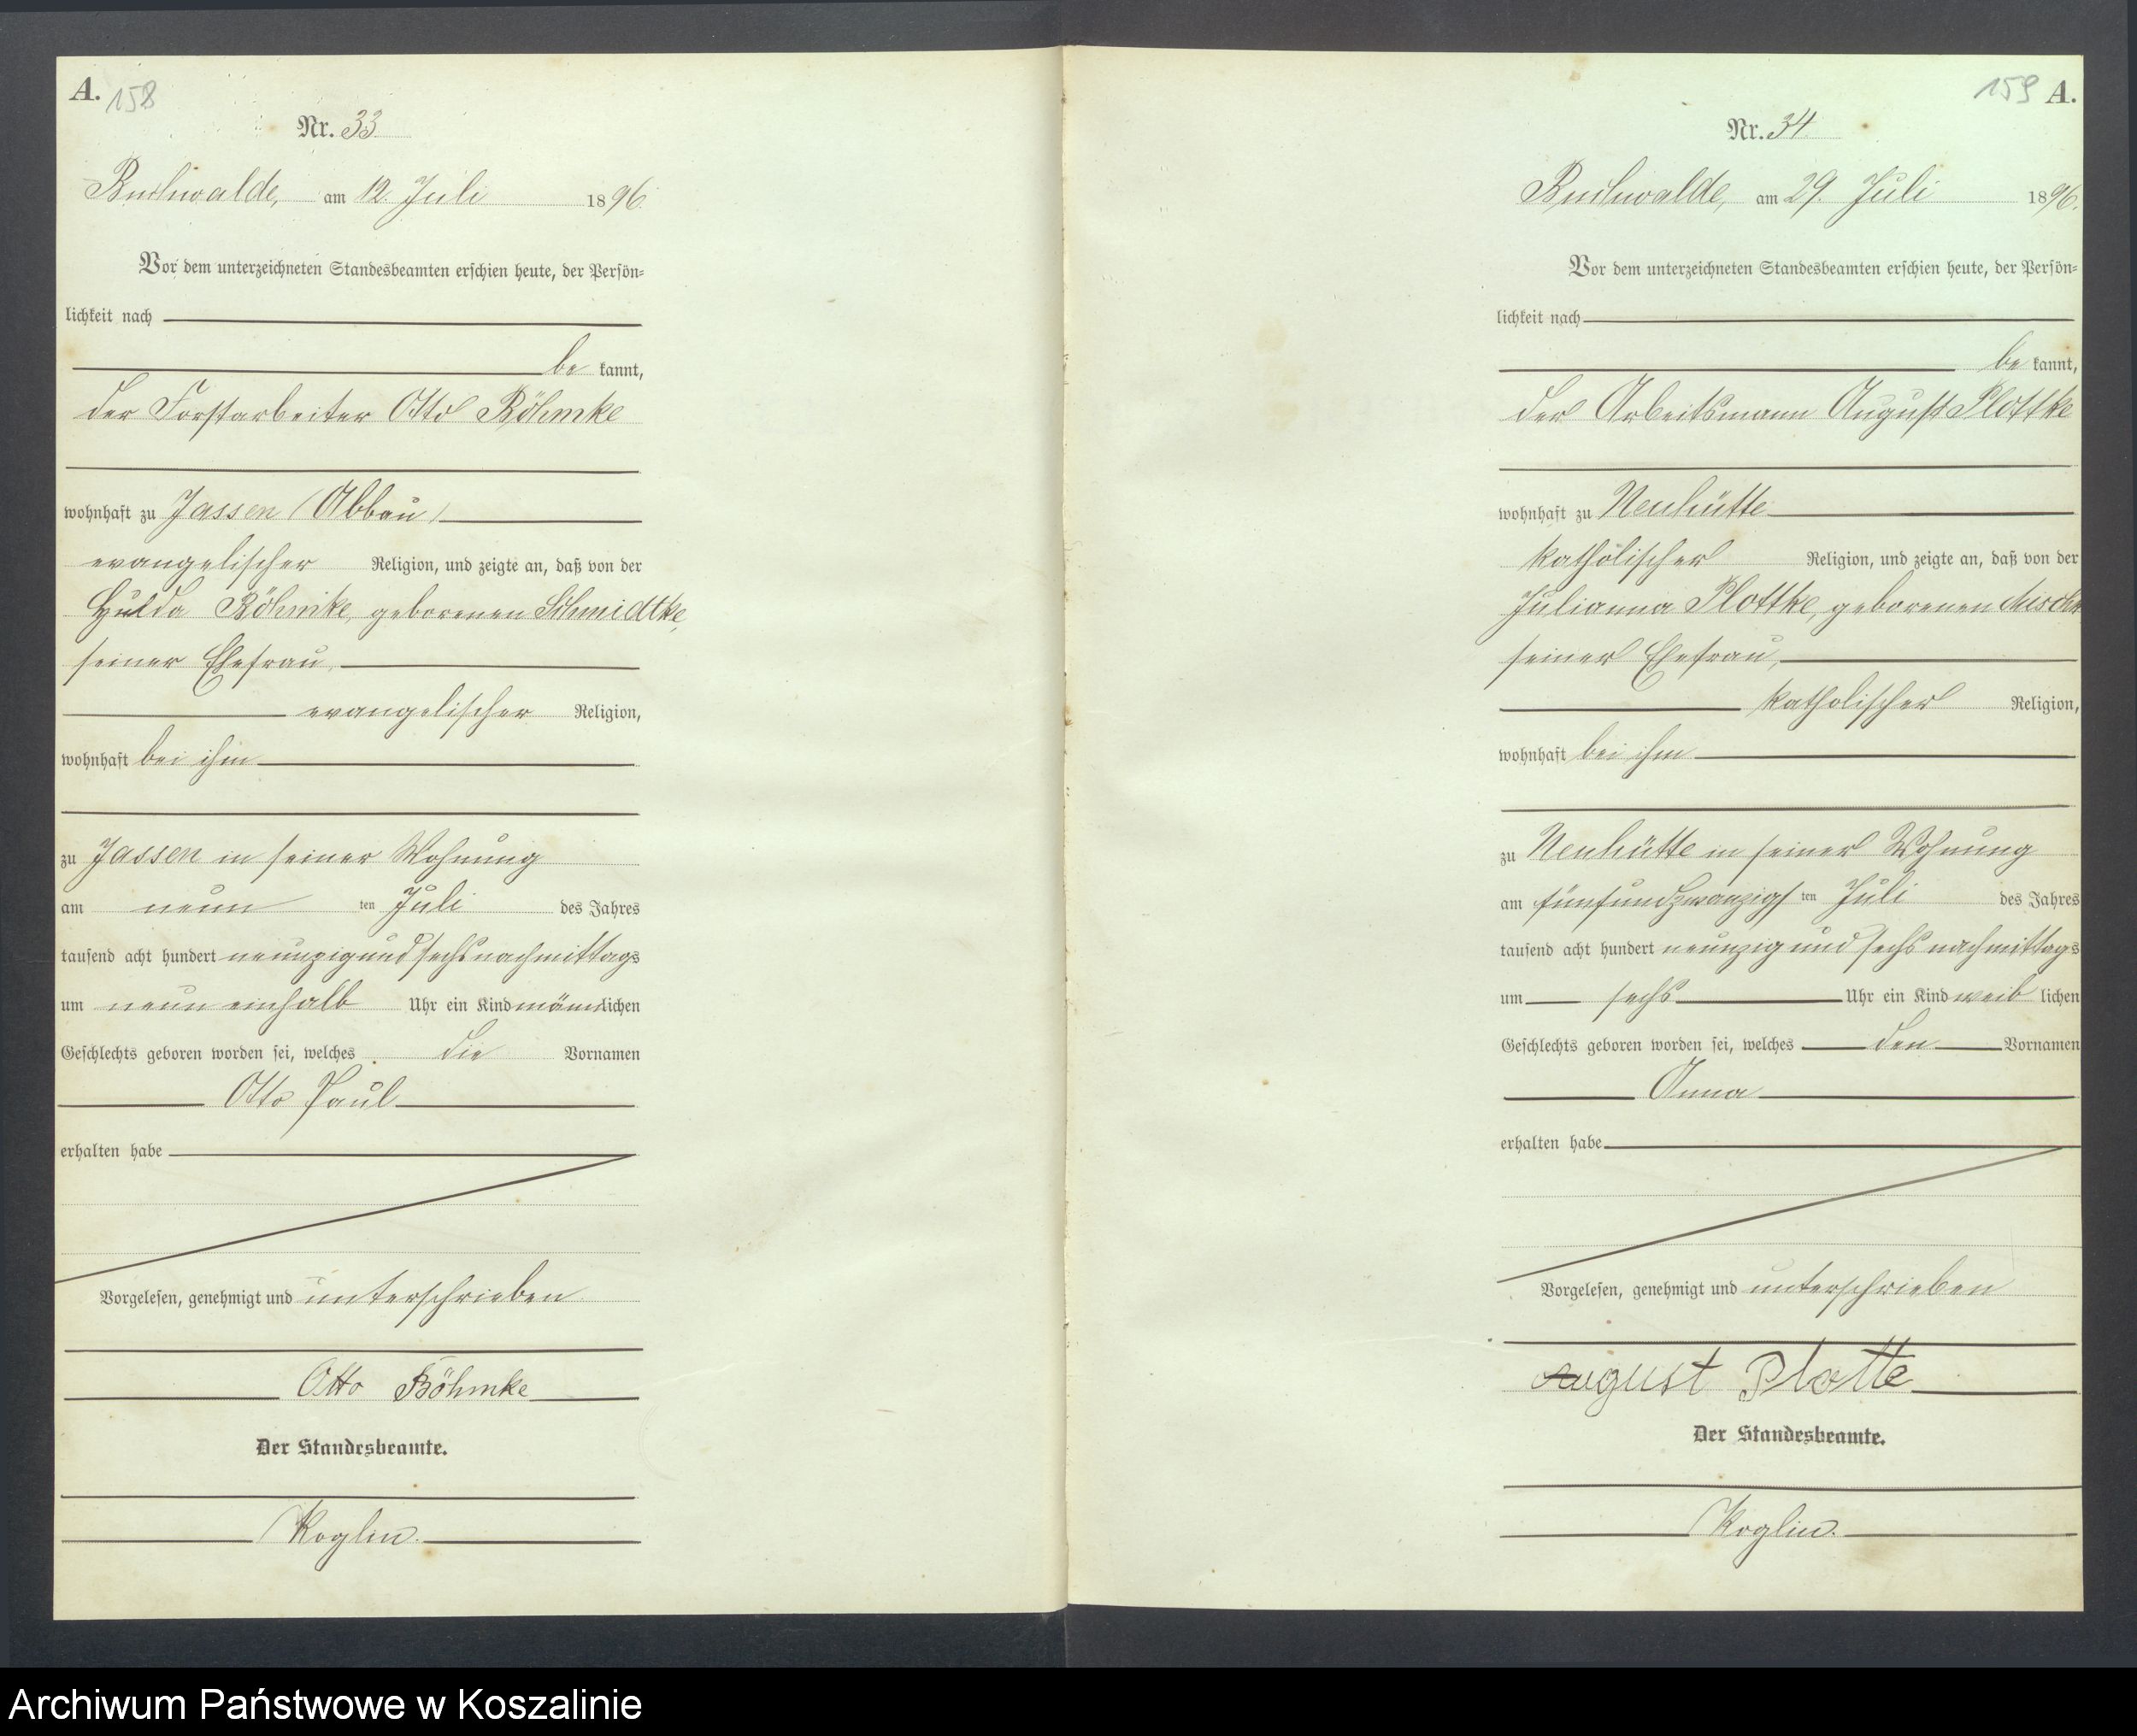 A. 158
Nr. 33
Buchwalde, am 12. Juli 1896.
Vor dem unterzeichneten Standesbeamten erschien heute, der Persön-
lichkeit nach
be kannt,
der Forstarbeiter Otto Böhmke
wohnhaft zu Jassen (Abbau)
evangelischer Religion, und zeigte an, daß von der
Hulda Böhmke, geborenen Schmidtke,
seiner Ehefrau,
evangelischer Religion,
wohnhaft bei ihm
zu Jassen in seiner Wohnung
am neun ten Juli des Jahres
tausend acht hundert neunzig und sechs nachmittags
um neun einhalb Uhr ein Kind männlichen
Geschlechts geboren worden sei, welches die Vornamen
Otto Paul
erhalten habe
Vorgelesen, genehmigt und unterschrieben
Otto Böhmke
Der Standesbeamte.
Koglin.
159 A.
Nr. 34
Buchwalde, am 29. Juli 1896.
Vor dem unterzeichneten Standesbeamten erschien heute, der Persön-
lichkeit nach
be kannt,
der Arbeitsmann August Plottke
wohnhaft zu Neuhütte
katholischer Religion, und zeigte an, daß von der
Julianna Plottke, geborenen
seiner Ehefrau,
katholischer Religion,
wohnhaft bei ihm
zu Neuhütte in seiner Wohnung
am fünfundzwanzigs ten Juli des Jahres
tausend acht hundert neunzig und sechs nachmittags
um sechs Uhr ein Kind weib lichen
Geschlechts geboren worden sei, welches den Vornamen
Anna
erhalten habe
Vorgelesen, genehmigt und unterschrieben
August Plotte
Der Standesbeamte.
Koglin.
Archiwum Państwowe w Koszalinie